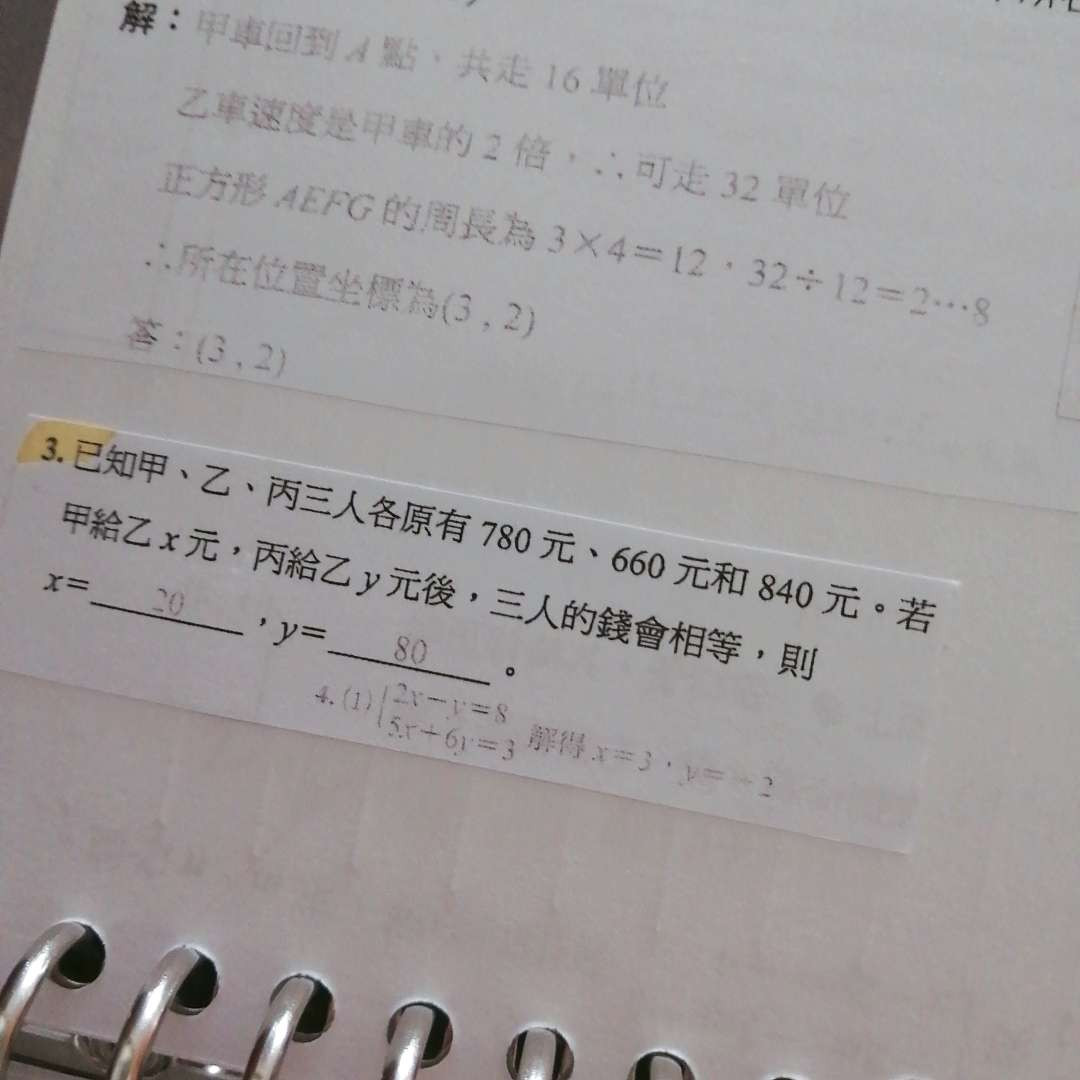 解：甲車回到 A 點，共走 16 單位
乙車速度是甲車的 2 倍，∴可走 32 單位
正方形 AEFG 的周長為 3×4=12，32÷12=2…8
∴所在位置坐標為(3 , 2)
答：(3 , 2)
3. 已知甲、乙、丙三人各原有 780 元、660 元和 840 元。若
甲給乙 x 元，丙給乙 y 元後，三人的錢會相等，則
x= 20 ，y= 80 。
4. (1) { 2x－y=8
5x＋6y=3 解得 x=3，y=－2